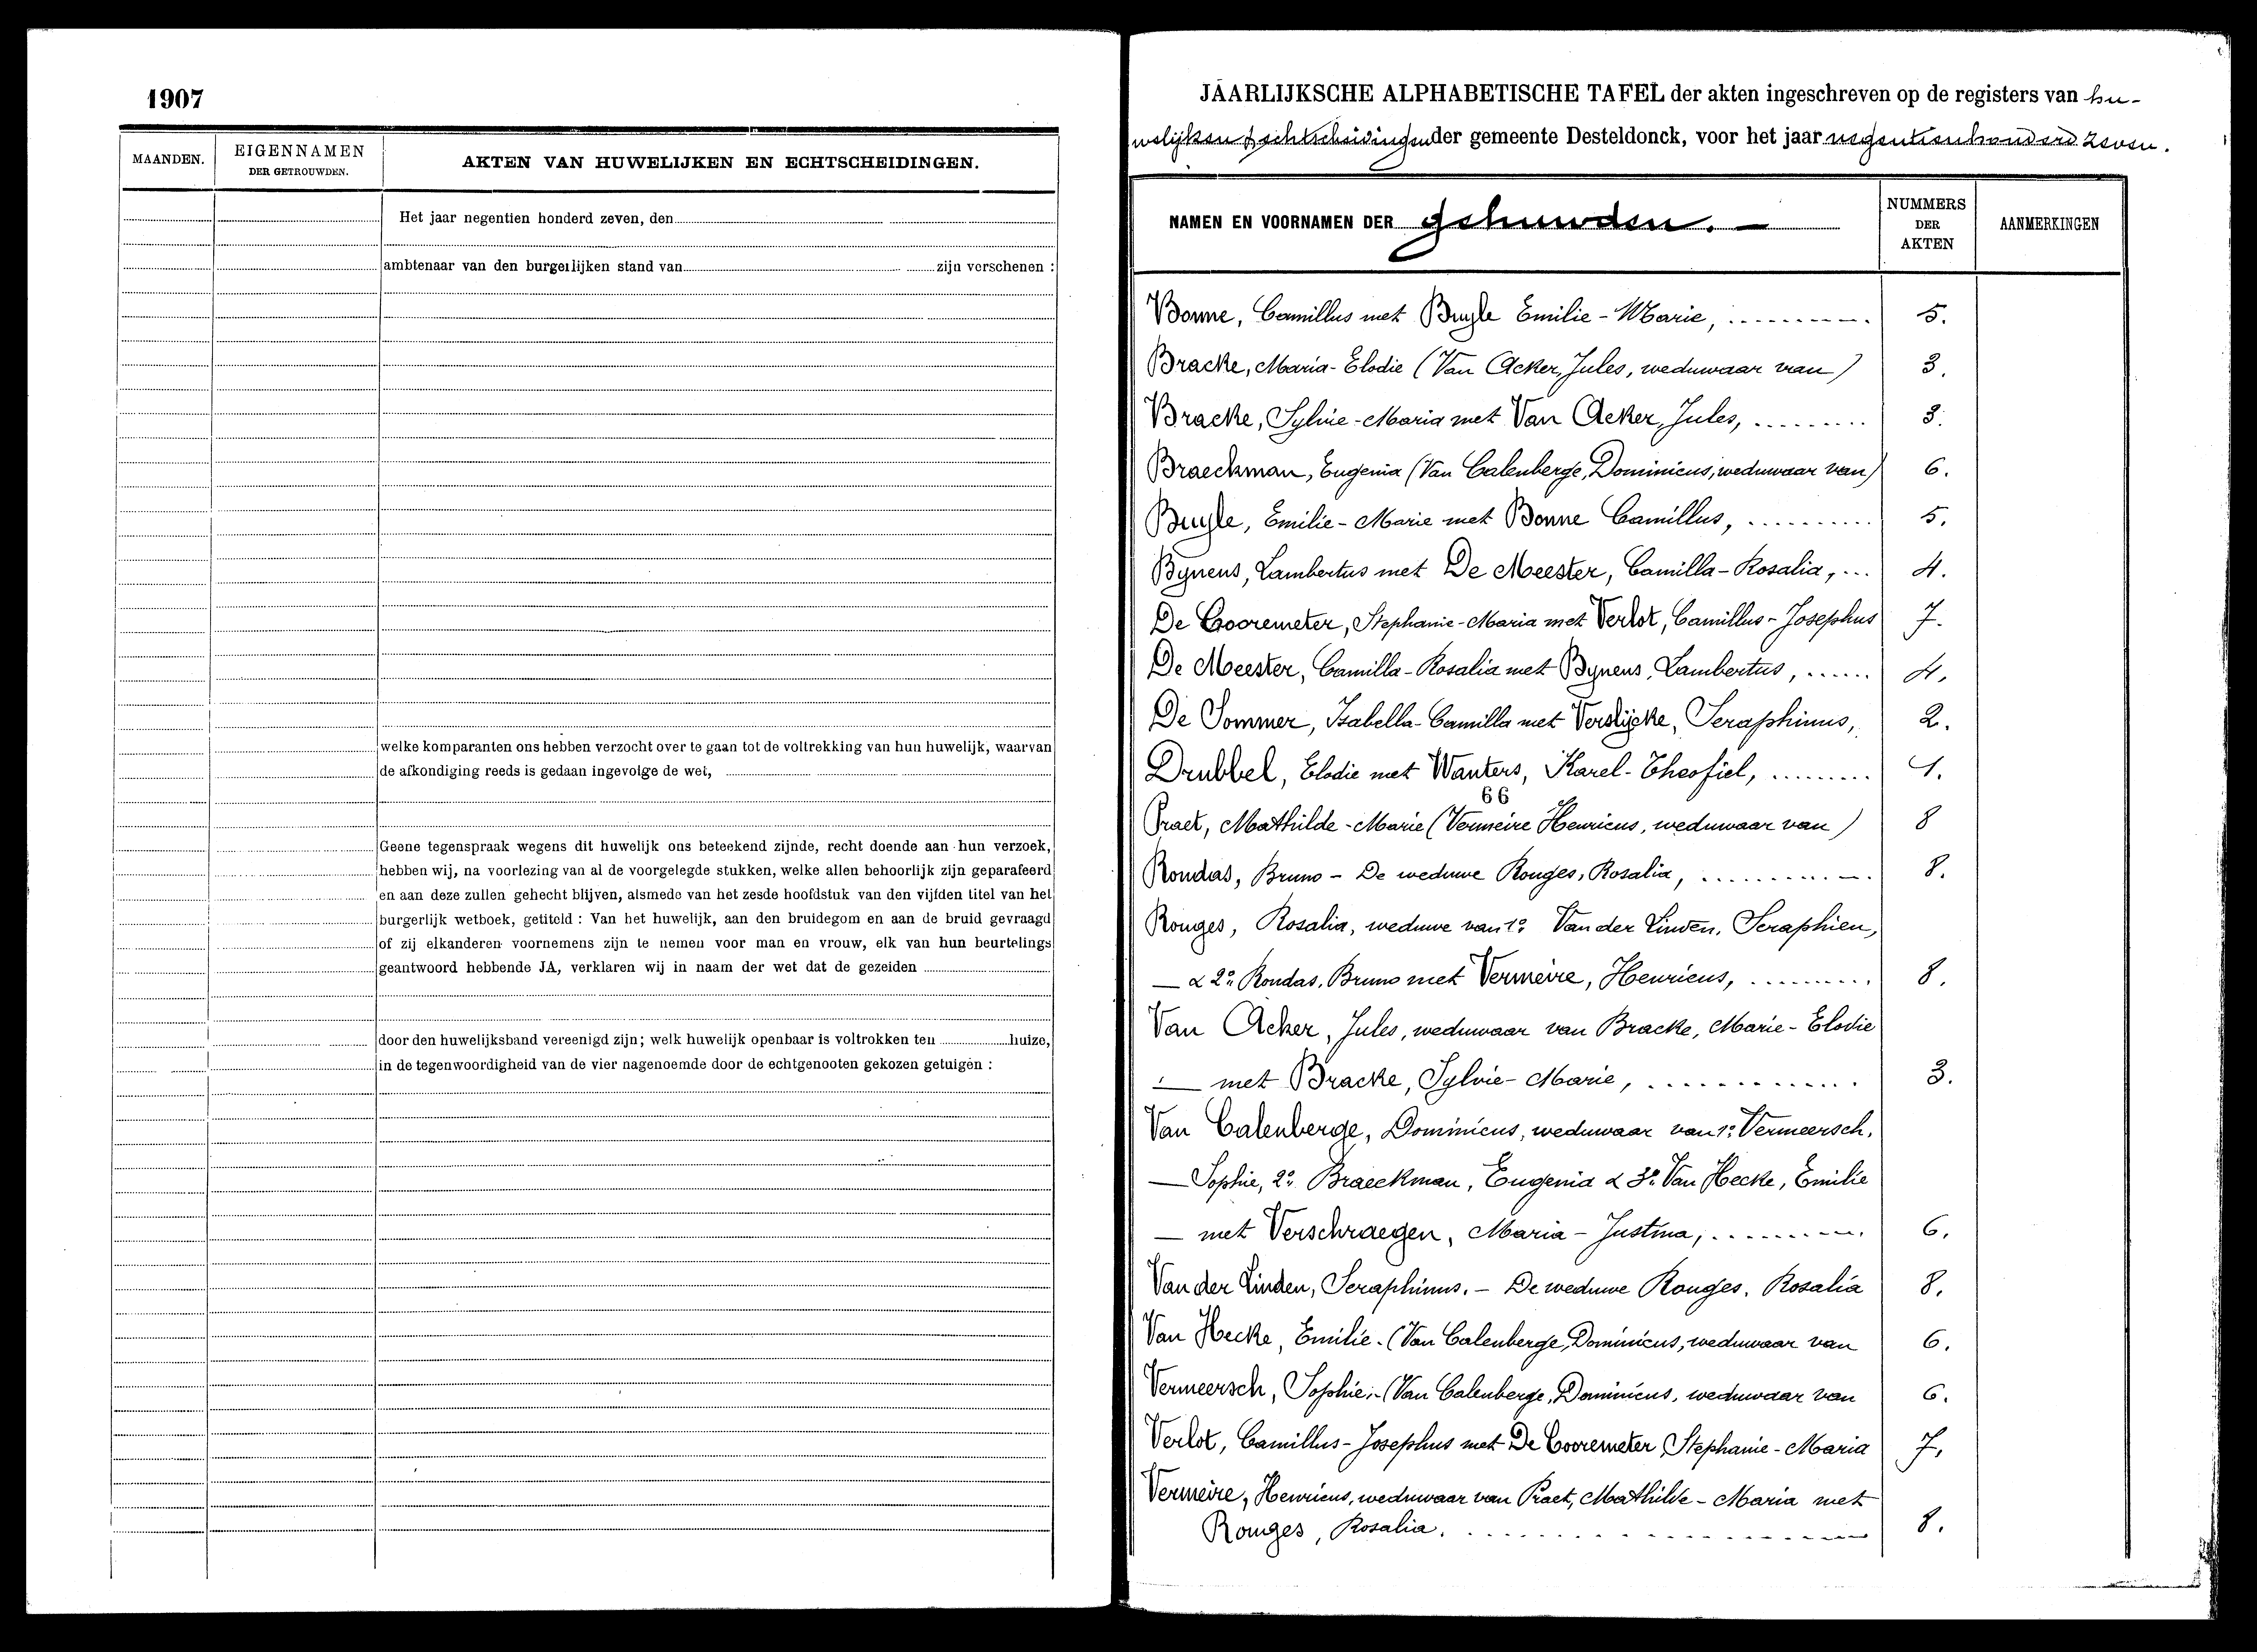 1907
MAANDEN.
EIGENNAMEN
DER GETROUWDEN.
AKTEN VAN HUWELIJKEN EN ECHTSCHEIDINGEN.
Het jaar negentien honderd zeven, den
ambtenaar van den burgerlijken stand van zijn verschenen :
welke komparanten ons hebben verzocht over te gaan tot de voltrekking van hun huwelijk, waarvan
de afkondiging reeds is gedaan ingevolge de wet,
Geene tegenspraak wegens dit huwelijk ons beteekend zijnde, recht doende aan hun verzoek,
hebben wij, na voorlezing van al de voorgelegde stukken, welke allen behoorlijk zijn geparafeerd
en aan deze zullen gehecht blijven, alsmede van het zesde hoofdstuk van den vijfden titel van het
burgerlijk wetboek, getiteld : Van het huwelijk, aan den bruidegom en aan de bruid gevraagd
of zij elkanderen voornemens zijn te nemen voor man en vrouw, elk van hun beurtelings
geantwoord hebbende JA, verklaren wij in naam der wet dat de gezeiden
door den huwelijksband vereenigd zijn; welk huwelijk openbaar is voltrokken ten huize,
in de tegenwoordigheid van de vier nagenoemde door de echtgenooten gekozen getuigen :
JAARLIJKSCHE ALPHABETISCHE TAFEL der akten ingeschreven op de registers van hu-
welijken & echtscheidingen der gemeente Desteldonck, voor het jaar negentienhonderd zeven.
NAMEN EN VOORNAMEN DER gehuwden. —
NUMMERS
DER
AKTEN
AANMERKINGEN
Bonne, Camillus met Bruyle Emilie-Marie, 5.
Bracke, Maria-Elodie (Van Acker, Jules, weduwaar van) 3.
Bracke, Sylvie-Maria met Van Acker, Jules, 3.
Braeckman, Eugenia (Van Calenberge, Dominicus, weduwaar van) 6.
Bruyle, Emilie-Marie met Bonne Camillus, 5.
Bynens, Lambertus met De Meester, Camilla-Rosalia, 4.
De Cooremeter, Stephanie-Maria met Verlot, Camillus-Josephus 7.
De Meester, Camilla-Rosalia met Bynens, Lambertus, 4.
De Sommer, Isabella-Camilla met Verslijcke, Seraphinus, 2.
Drubbel, Elodie met Wauters, Karel-Theofiel, 1.
66
Praet, Mathilde-Marie (Vermeire Henricus, weduwaar van) 8
Rondas, Bruno - De weduwe Rouges, Rosalia, 8.
Rouges, Rosalia, weduwe van 1º Van der Linden, Seraphien,
— & 2º Rondas, Bruno met Vermeire, Henricus, 8.
Van Acker, Jules, weduwaar van Bracke, Marie-Elodie
— met Bracke, Sylvie-Marie, 3.
Van Calenberge, Dominicus, weduwaar van 1º Vermeersch,
— Sophie, 2º Braeckman, Eugenia & 3º Van Hecke, Emilie
— met Verschraegen, Maria-Justina, 6.
Van der Linden, Seraphinus. - De weduwe Rouges, Rosalia 8.
Van Hecke, Emilie. (Van Calenberge, Dominicus, weduwaar van 6.
Vermeersch, Sophie. - (Van Calenberge, Dominicus, weduwaar van 6.
Verlot, Camillus-Josephus met De Cooremeter, Stephanie-Maria 7,
Vermeire, Henricus, weduwaar van Praet, Mathilde-Maria met
Rouges, Rosalia. 8.